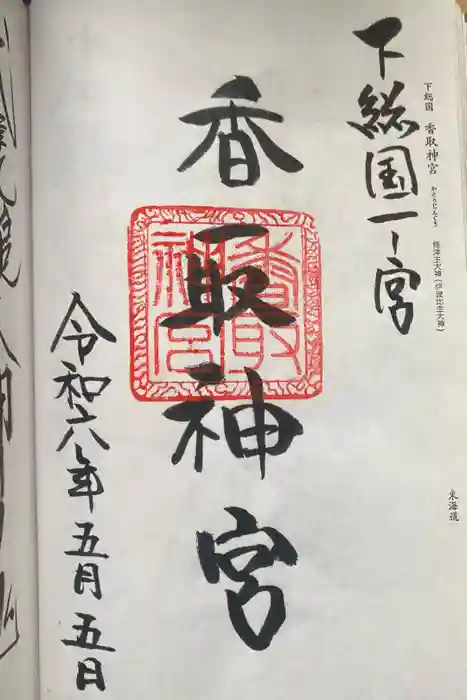 下総国 香取神宮 かとりじんぐう 経津主大神（伊波比主大神）
東海道
下総国一ノ宮
香取神宮
香取神宮
令和六年五月五日